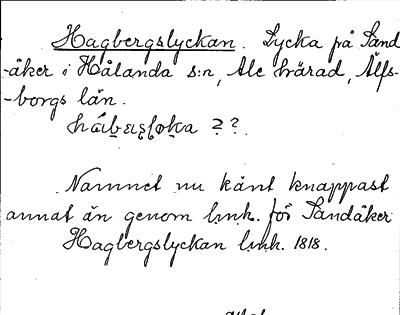 Hagbergslyckan. Lycka på Sand
-åker i Hålanda s:n, Ale härad, Älfs-
-borgs län.
? ?.
Namnet nu känt knappast
annat än genom lmk. för Sandåker
Hagbergslyckan lmk. 1818.